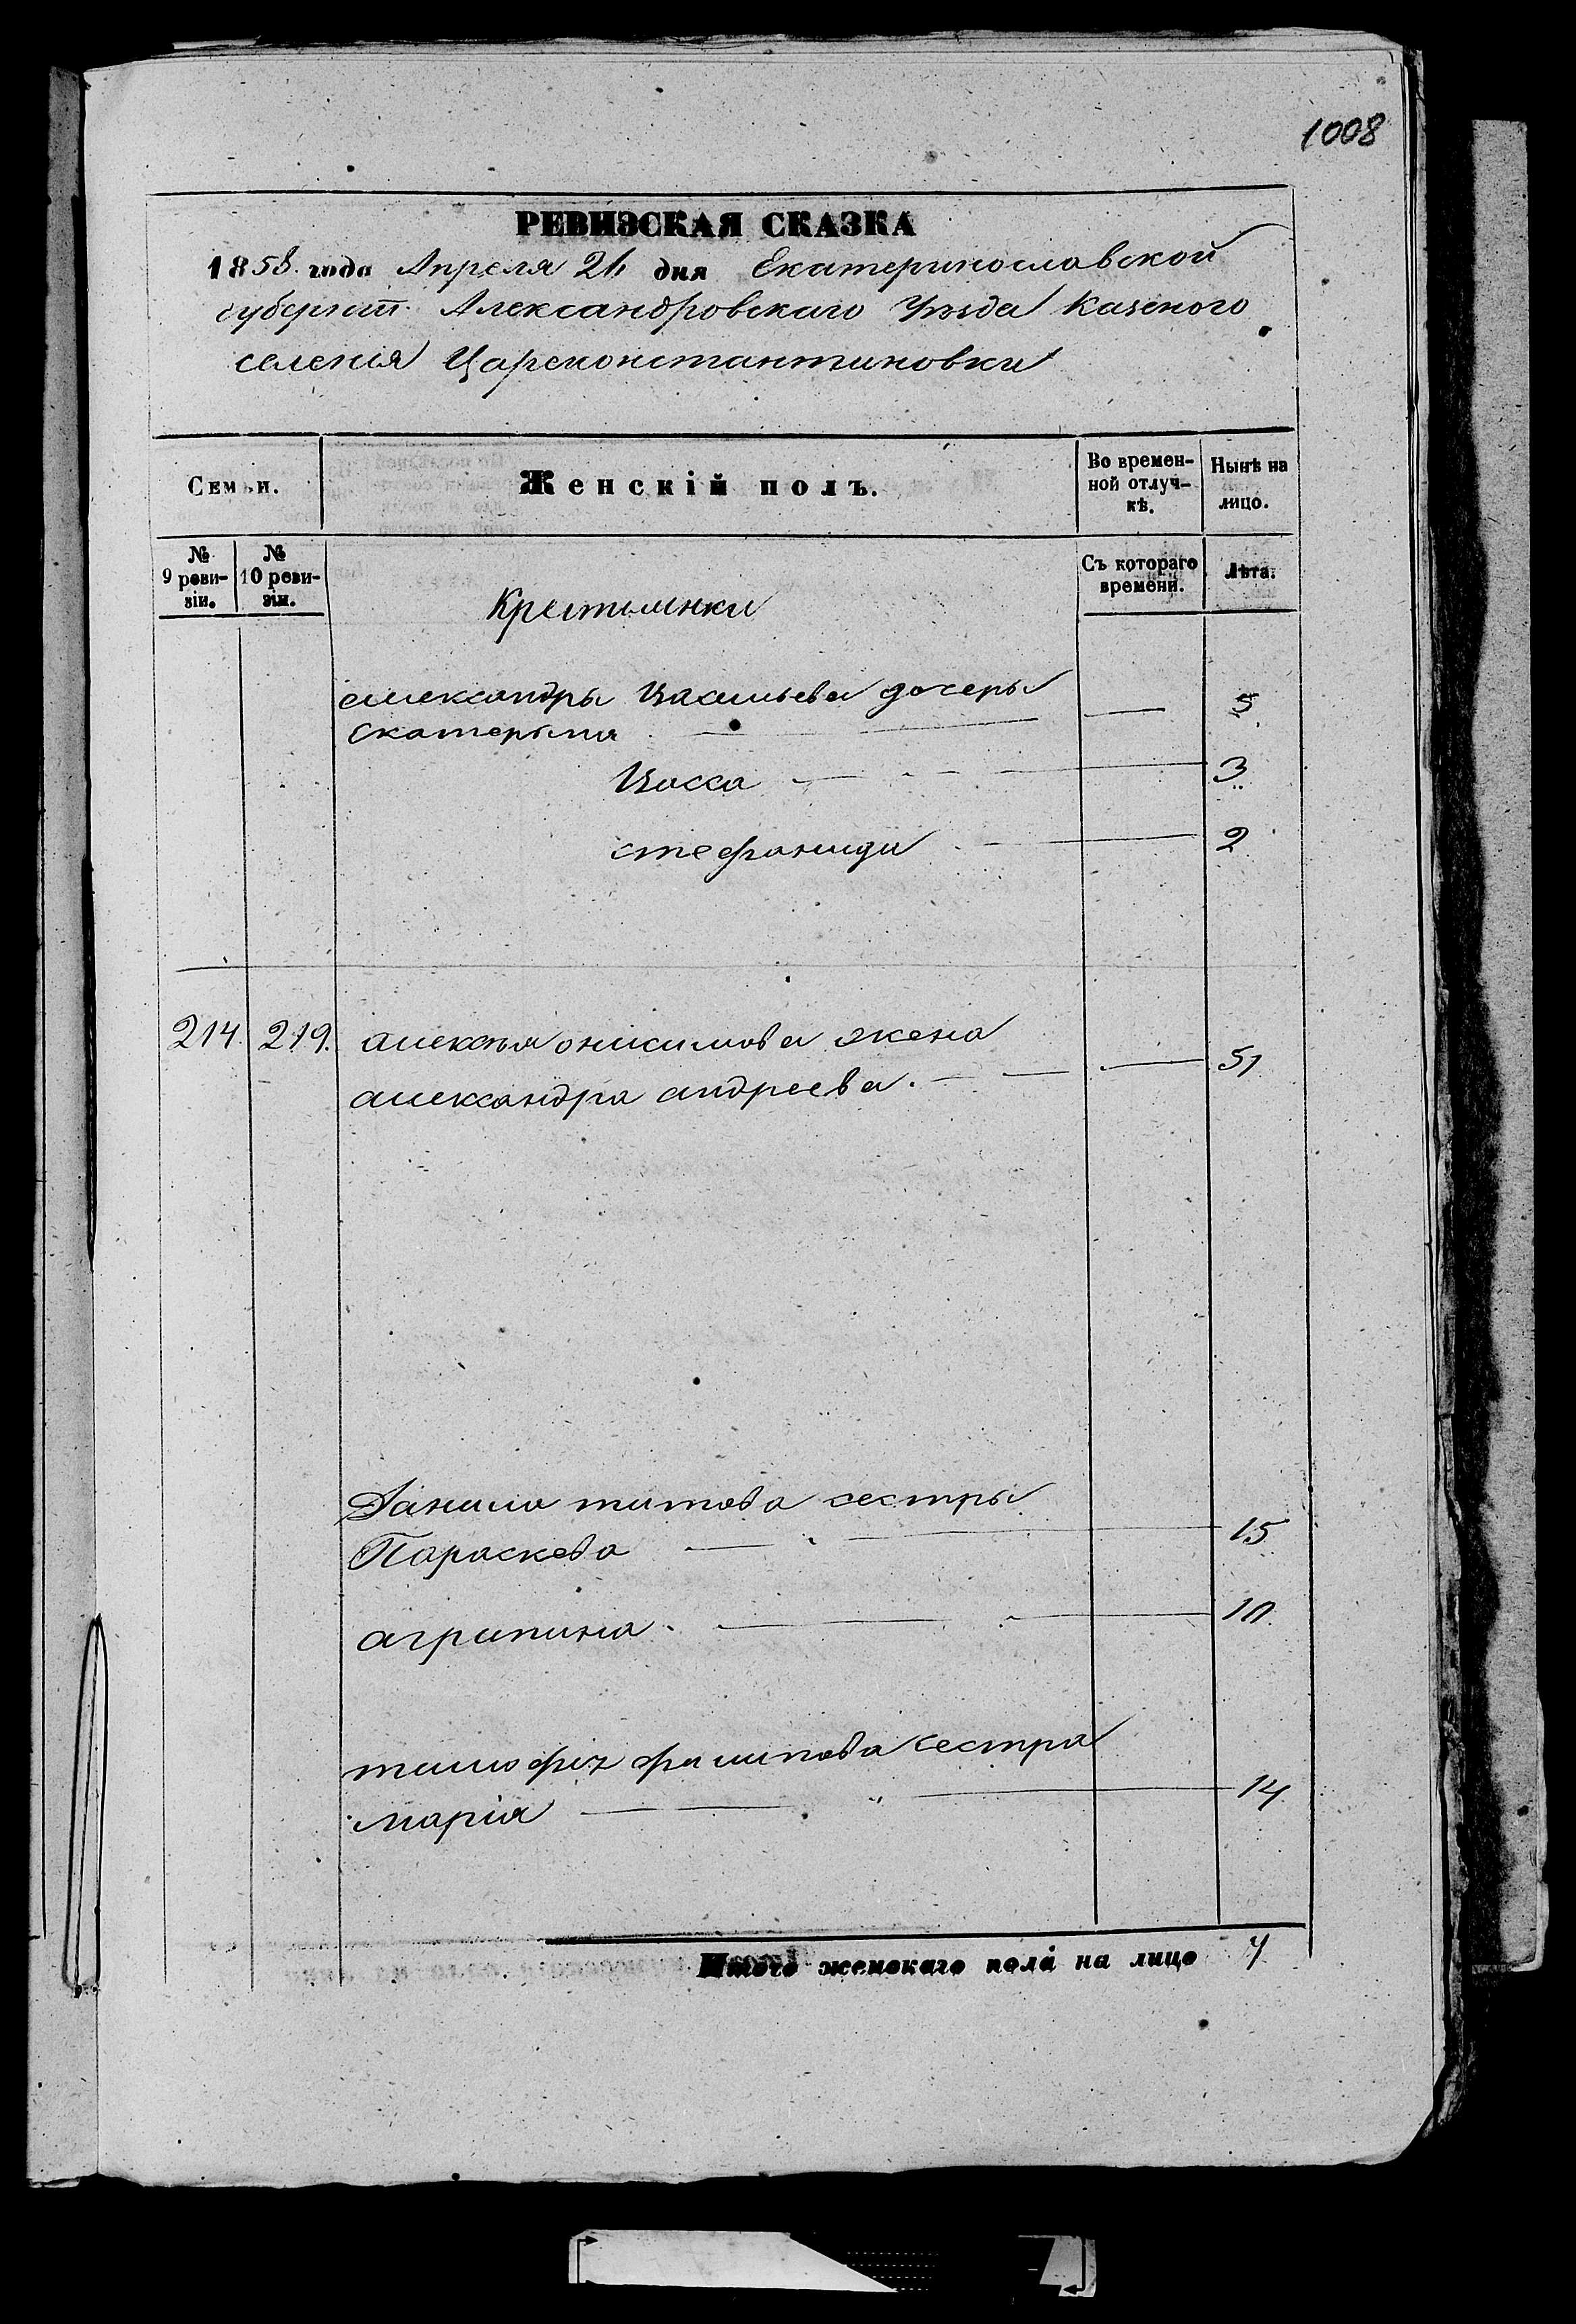 1008
РЕВИЗСКАЯ СКАЗКА
1858. года Апреля 21 дня Екатеринославской
губерніи Александровскаго Уѣзда Казеного
селенія Цареконстантиновки
Семьи.
Женскій полъ.
Во времен-
ной отлуч-
кѣ.
Нынѣ на
лицо.
№
9 реви-
зіи.
№
10 реви-
зіи.
Съ котораго
времени.
Лѣта.
Крестьянки
александры Васильева дочеры
Екатерына 5
Васса 3
стефанида 2
214. 219. алексѣя онисимова жена
александра андреева. 51
Данила титова сестры
Параскева 15
агрипина. 10
тимофѣя филипова сестра
марія 14
Итого женскаго пола на лицо 7